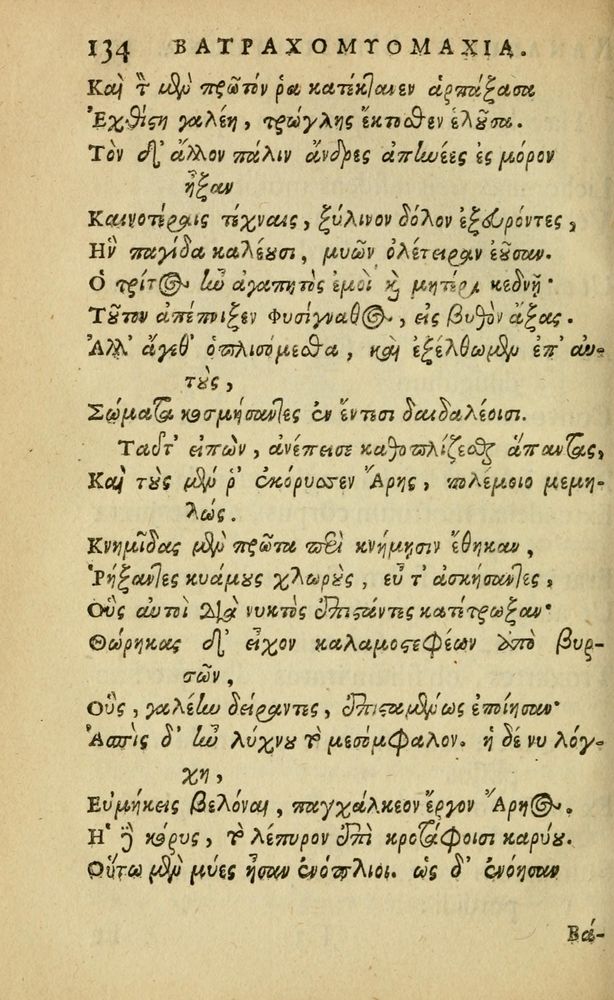 134 ΒΑΤΡΑΧΟΜΥΟΜΑΧΙΑ.
Καὶ τ μὲν πρῶτόν ῥα κατέκτανεν ἁρπάξασα
Ἐχθίστη γαλέη, τρώγλης ἔκτοσθεν ἑλοῦσα.
Τὸν δ' ἄλλον πάλιν ἄνδρες ἀπηνέες ἐς μόρον
ἦξαν
Καινοτέραις τέχναις, ξύλινον δόλον ἐξευρόντες,
Ἣν παγίδα καλέουσι, μυῶν ὀλέτειραν ἐοῦσαν.
Ὁ τρίτος ἦν ἀγαπητὸς ἐμοὶ καὶ μητέρι κεδνῇ·
Τοῦτον ἀπέπνιξεν Φυσίγναθος, εἰς βυθὸν ἄξας.
Ἀλλ' ἄγεθ' ὁπλισόμεσθα, καὶ ἐξέλθωμεν ἐπ' αὐ-
τοὺς,
Σώματα κοσμήσαντες ἐν ἔντεσι δαιδαλέοισι.
Ταῦτ' εἰπὼν, ἀνέπεισε καθοπλίζεσθαι ἅπαντας,
Καὶ τοὺς μέν ῥ' ἐκόρυσσεν Ἄρης, πολέμοιο μεμη-
λώς.
Κνημῖδας μὲν πρῶτα περὶ κνήμησιν ἔθηκαν,
Ῥήξαντες κυάμους χλωροὺς, εὖ τ' ἀσκήσαντες,
Οὓς αὐτοὶ διὰ νυκτὸς ἐπιστάντες κατέτρωξαν·
Θώρηκας δ' εἶχον καλαμοστεφέων ἀπὸ βυρ-
σῶν,
Οὓς, γαλέην δείραντες, ἐπισταμένως ἐποίησαν·
Ἀσπὶς δ' ἦν λύχνου τὸ μεσόμφαλον. ἡ δέ νυ λόγ-
χη,
Εὐμήκεις βελόναι, παγχάλκεον ἔργον Ἄρηος.
Ἡ δὲ κόρυς, τὸ λέπυρον ἐπὶ κροτάφοισι καρύου.
Οὕτω μὲν μύες ἦσαν ἐνόπλιοι. ὡς δ' ἐνόησαν
Βά-